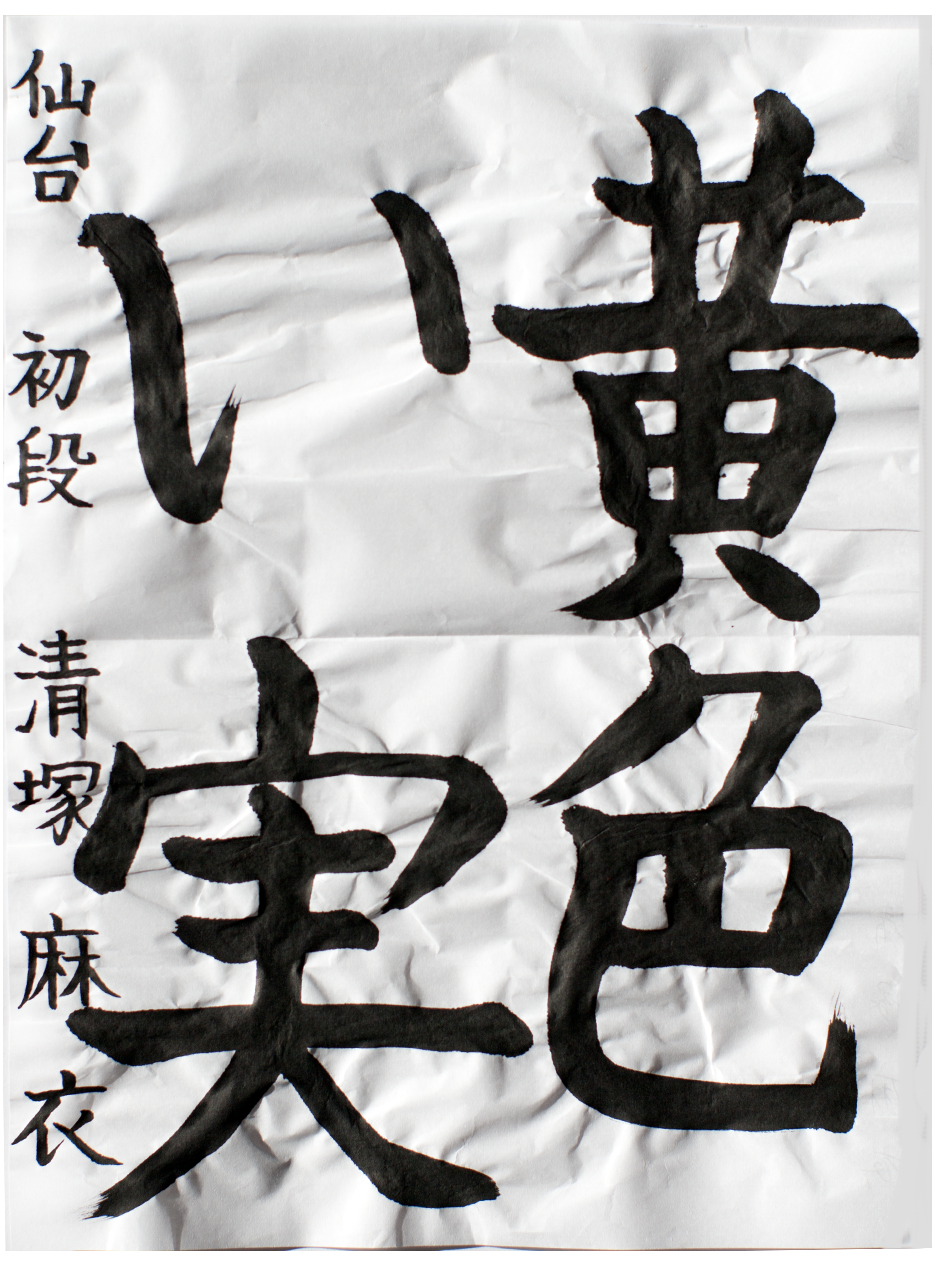 黄色
い実
仙台 初段 清塚 麻衣